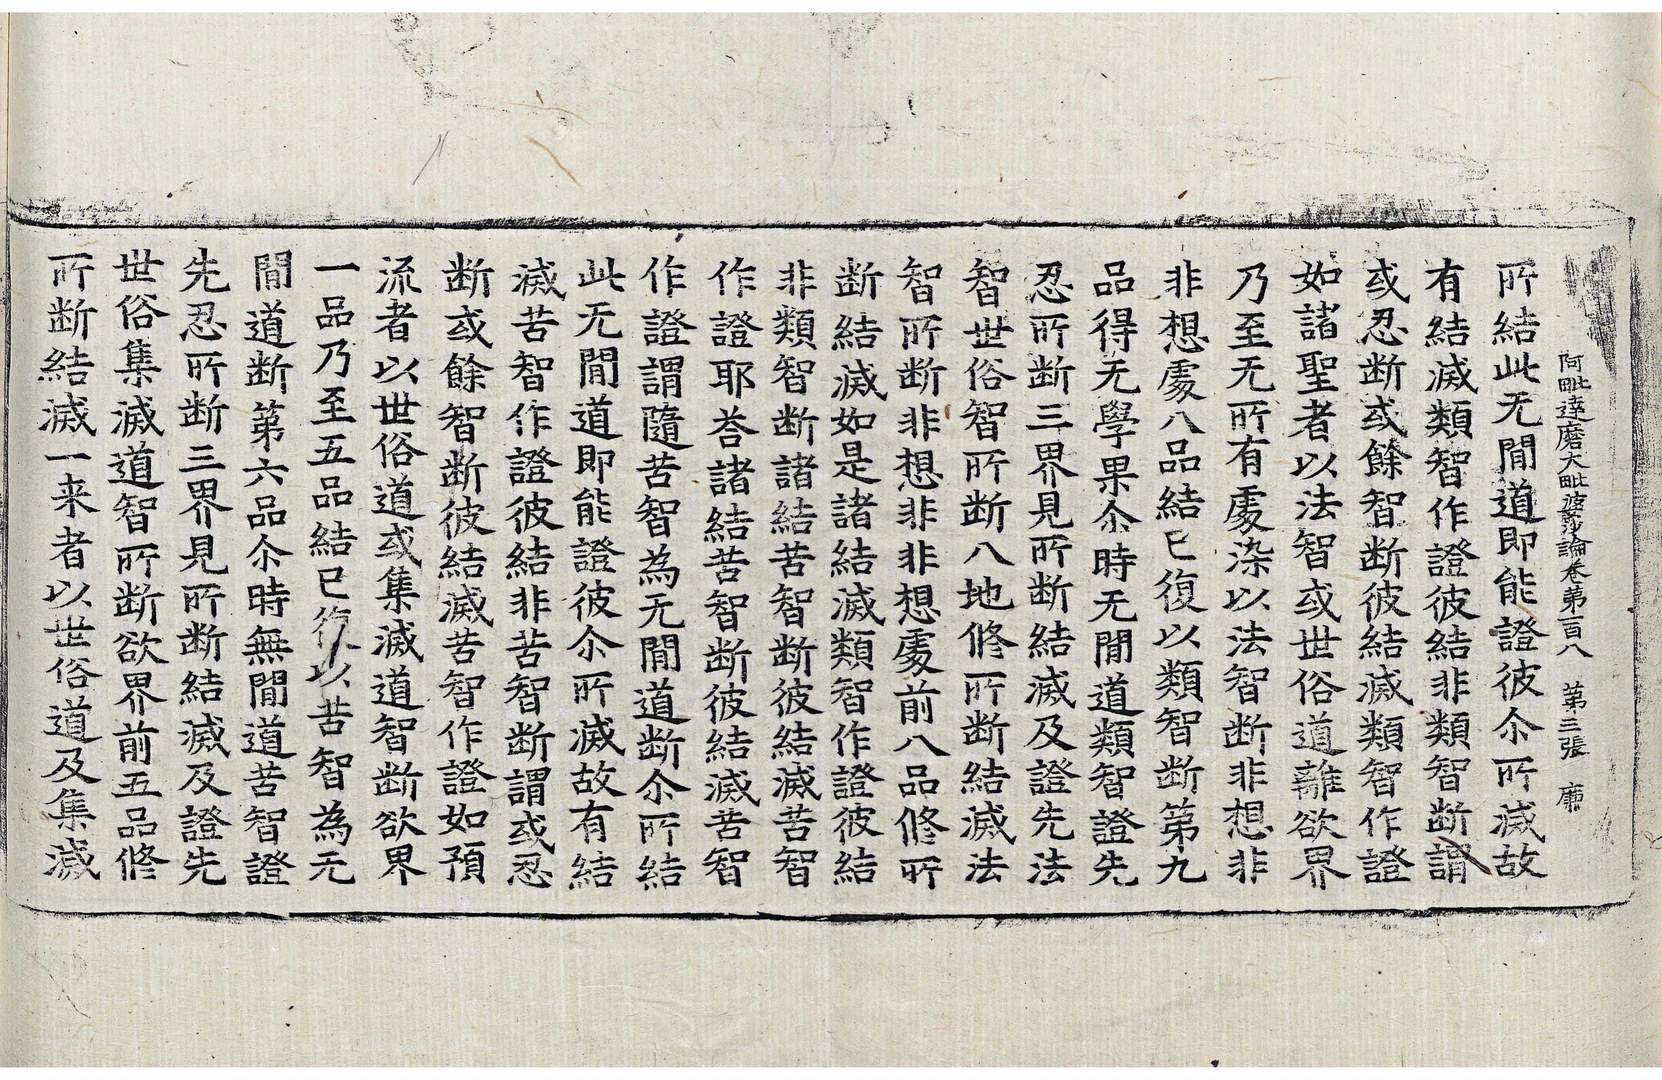 阿毗達磨大毗婆沙論卷第一百八 第三張 廉
所結此无閒道即能證彼尒所滅故
有結滅類智作證彼結非類智断謂
或忍断或餘智断彼結滅類智作證
如諸聖者以法智或世俗道離欲界
乃至无所有處染以法智断非想非
非想處八品結已復以類智断第九
品得无學果尒時无閒道類智證先
忍所断三界見所断結滅及證先法
智世俗智所断八地修所断結滅法
智所断非想非非想處前八品修所
断結滅如是諸結滅類智作證彼結
非類智断諸結苦智断彼結滅苦智
作證耶荅諸結苦智断彼結滅苦智
作證謂隨苦智為无閒道断尒所結
此无閒道即能證彼尒所滅故有結
滅苦智作證彼結非苦智断謂或忍
断或餘智断彼結滅苦智作證如預
流者以世俗道或集滅道智断欲界
一品乃至五品結已復以苦智為无
閒道断第六品尒時無閒道苦智證
先忍所断三界見所断結滅及證先
世俗集滅道智所断欲界前五品修
所断結滅一来者以世俗道及集滅